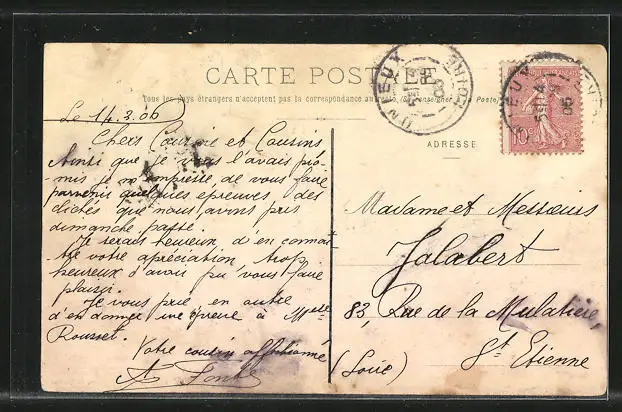 CARTE POSTALE
Tous les pays étrangers n'acceptent pas la correspondance au recto. (Se renseigner à la Poste
Le 14.3.06
Chers Cousine et Cousins
Ainsi que je vous l'avais pro-
mis je m'empresse de vous faire
parvenir quelques épreuves des
clichés que nous avons pris
dimanche passé.
Je serais heureux d'en connai
tre votre apréciation trop
heureux d'avoir pu vous faire
plaisir.
Je vous prie en outre
d'en donner une épreuve à Melle
Rousset.
Votre cousin affectionné
A
ADRESSE
Madame et Messieurs
Jalabert
83, Rue de la Mulatière,
St Etienne
(Loire)
UNIEUX
LOIRE
10c